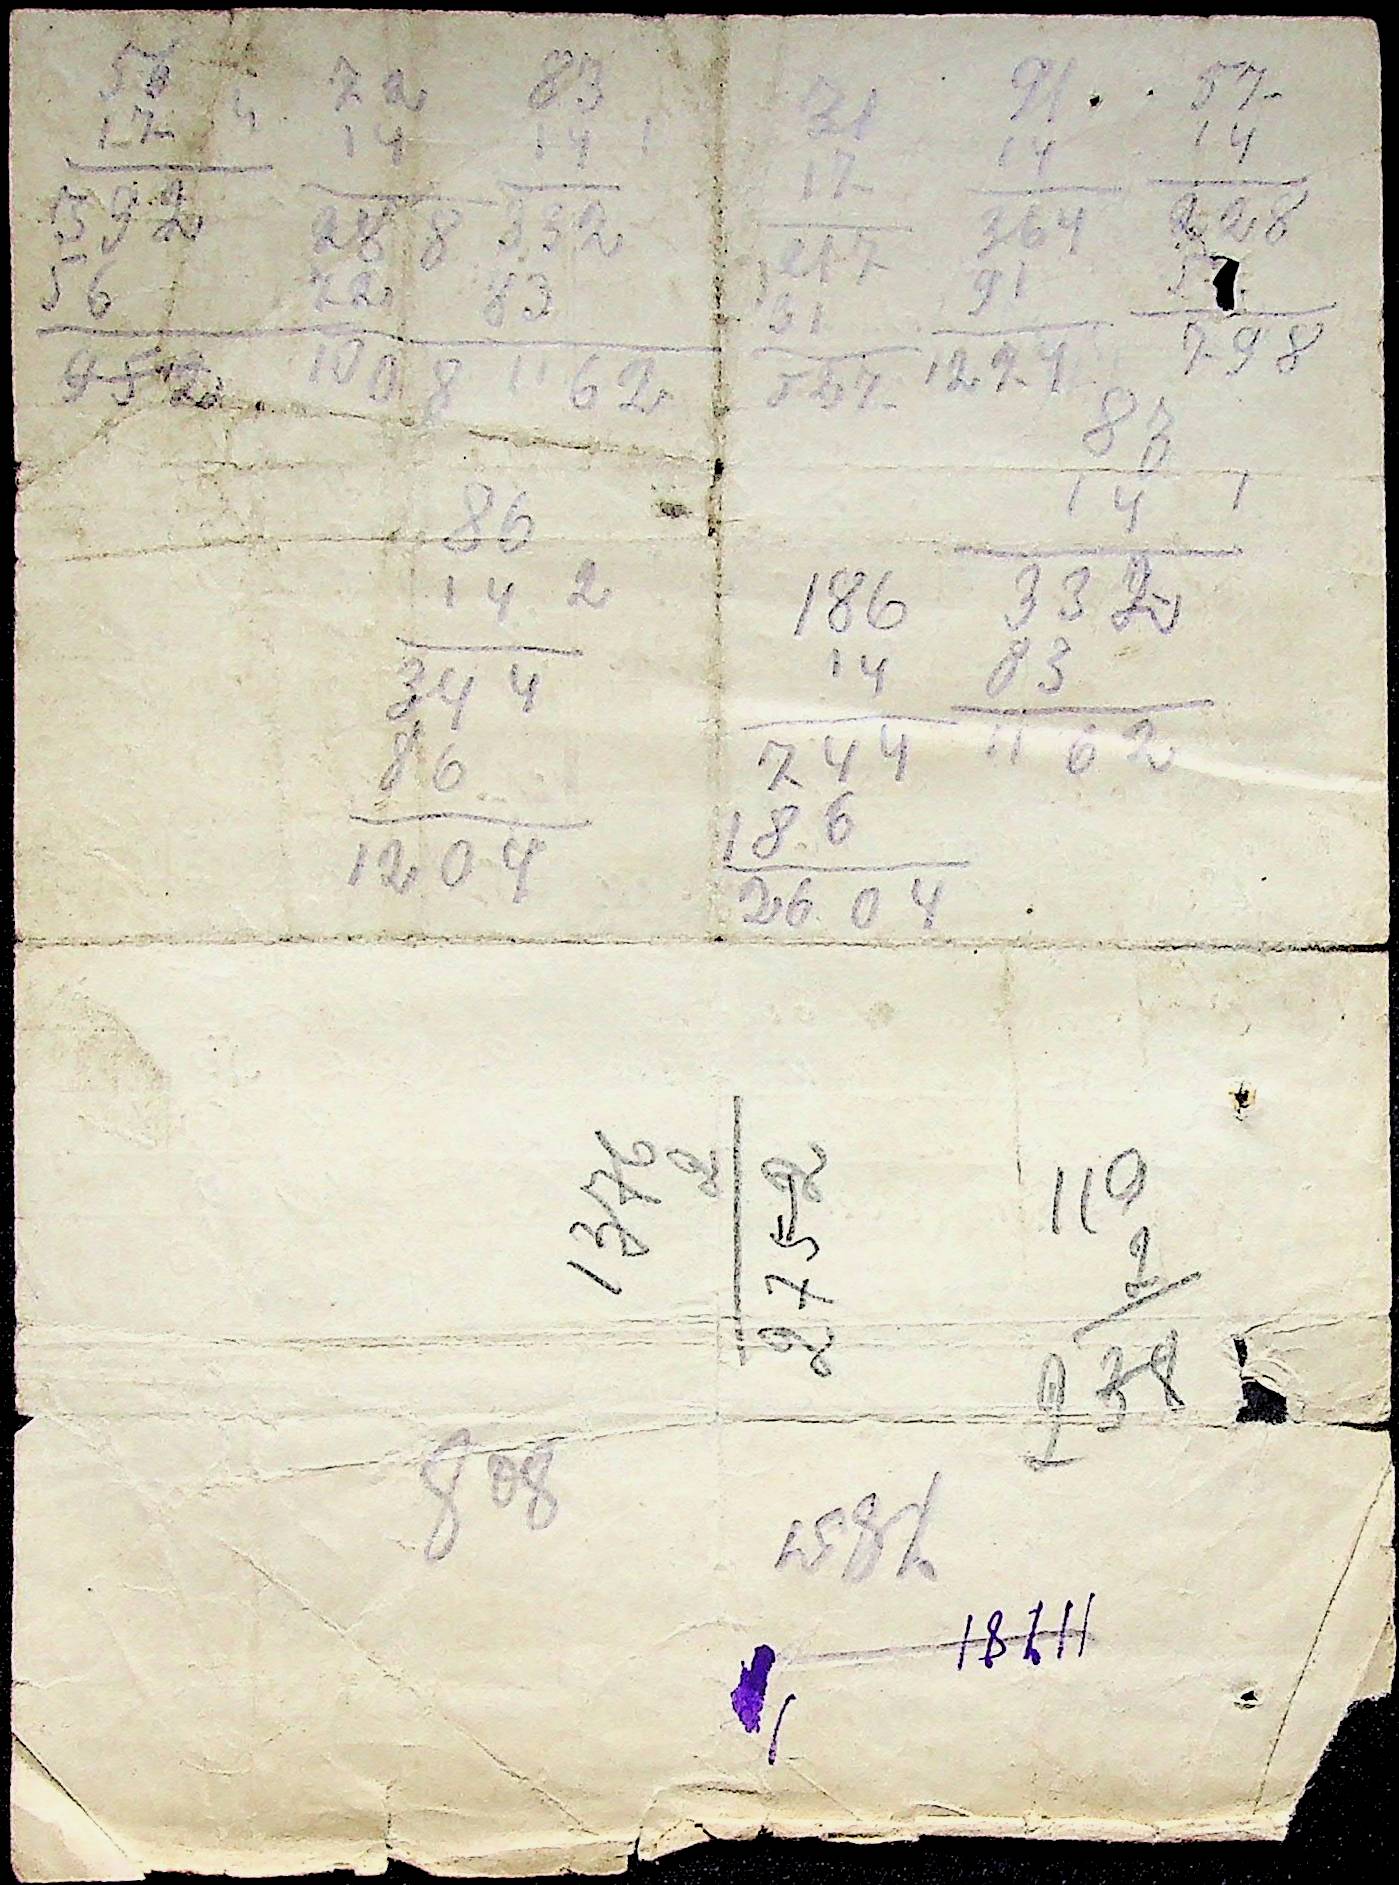 56 72 83 31 91 57
17 4 14 14 1 17 14 14
392 288 332 217 364 228
56 72 83 31 91 57
952 1008 1162 527 1274 798
86 83
14 2 14 1
344 186 332
86 14 83
1204 744 1162
186
2604
1376
2
2752
110
2
238
808